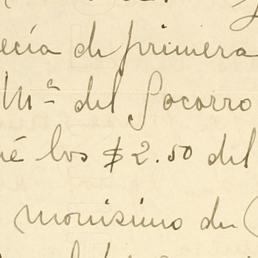 ecía de primera
Mª del Socorro
é los $2.50 del
monísimo de